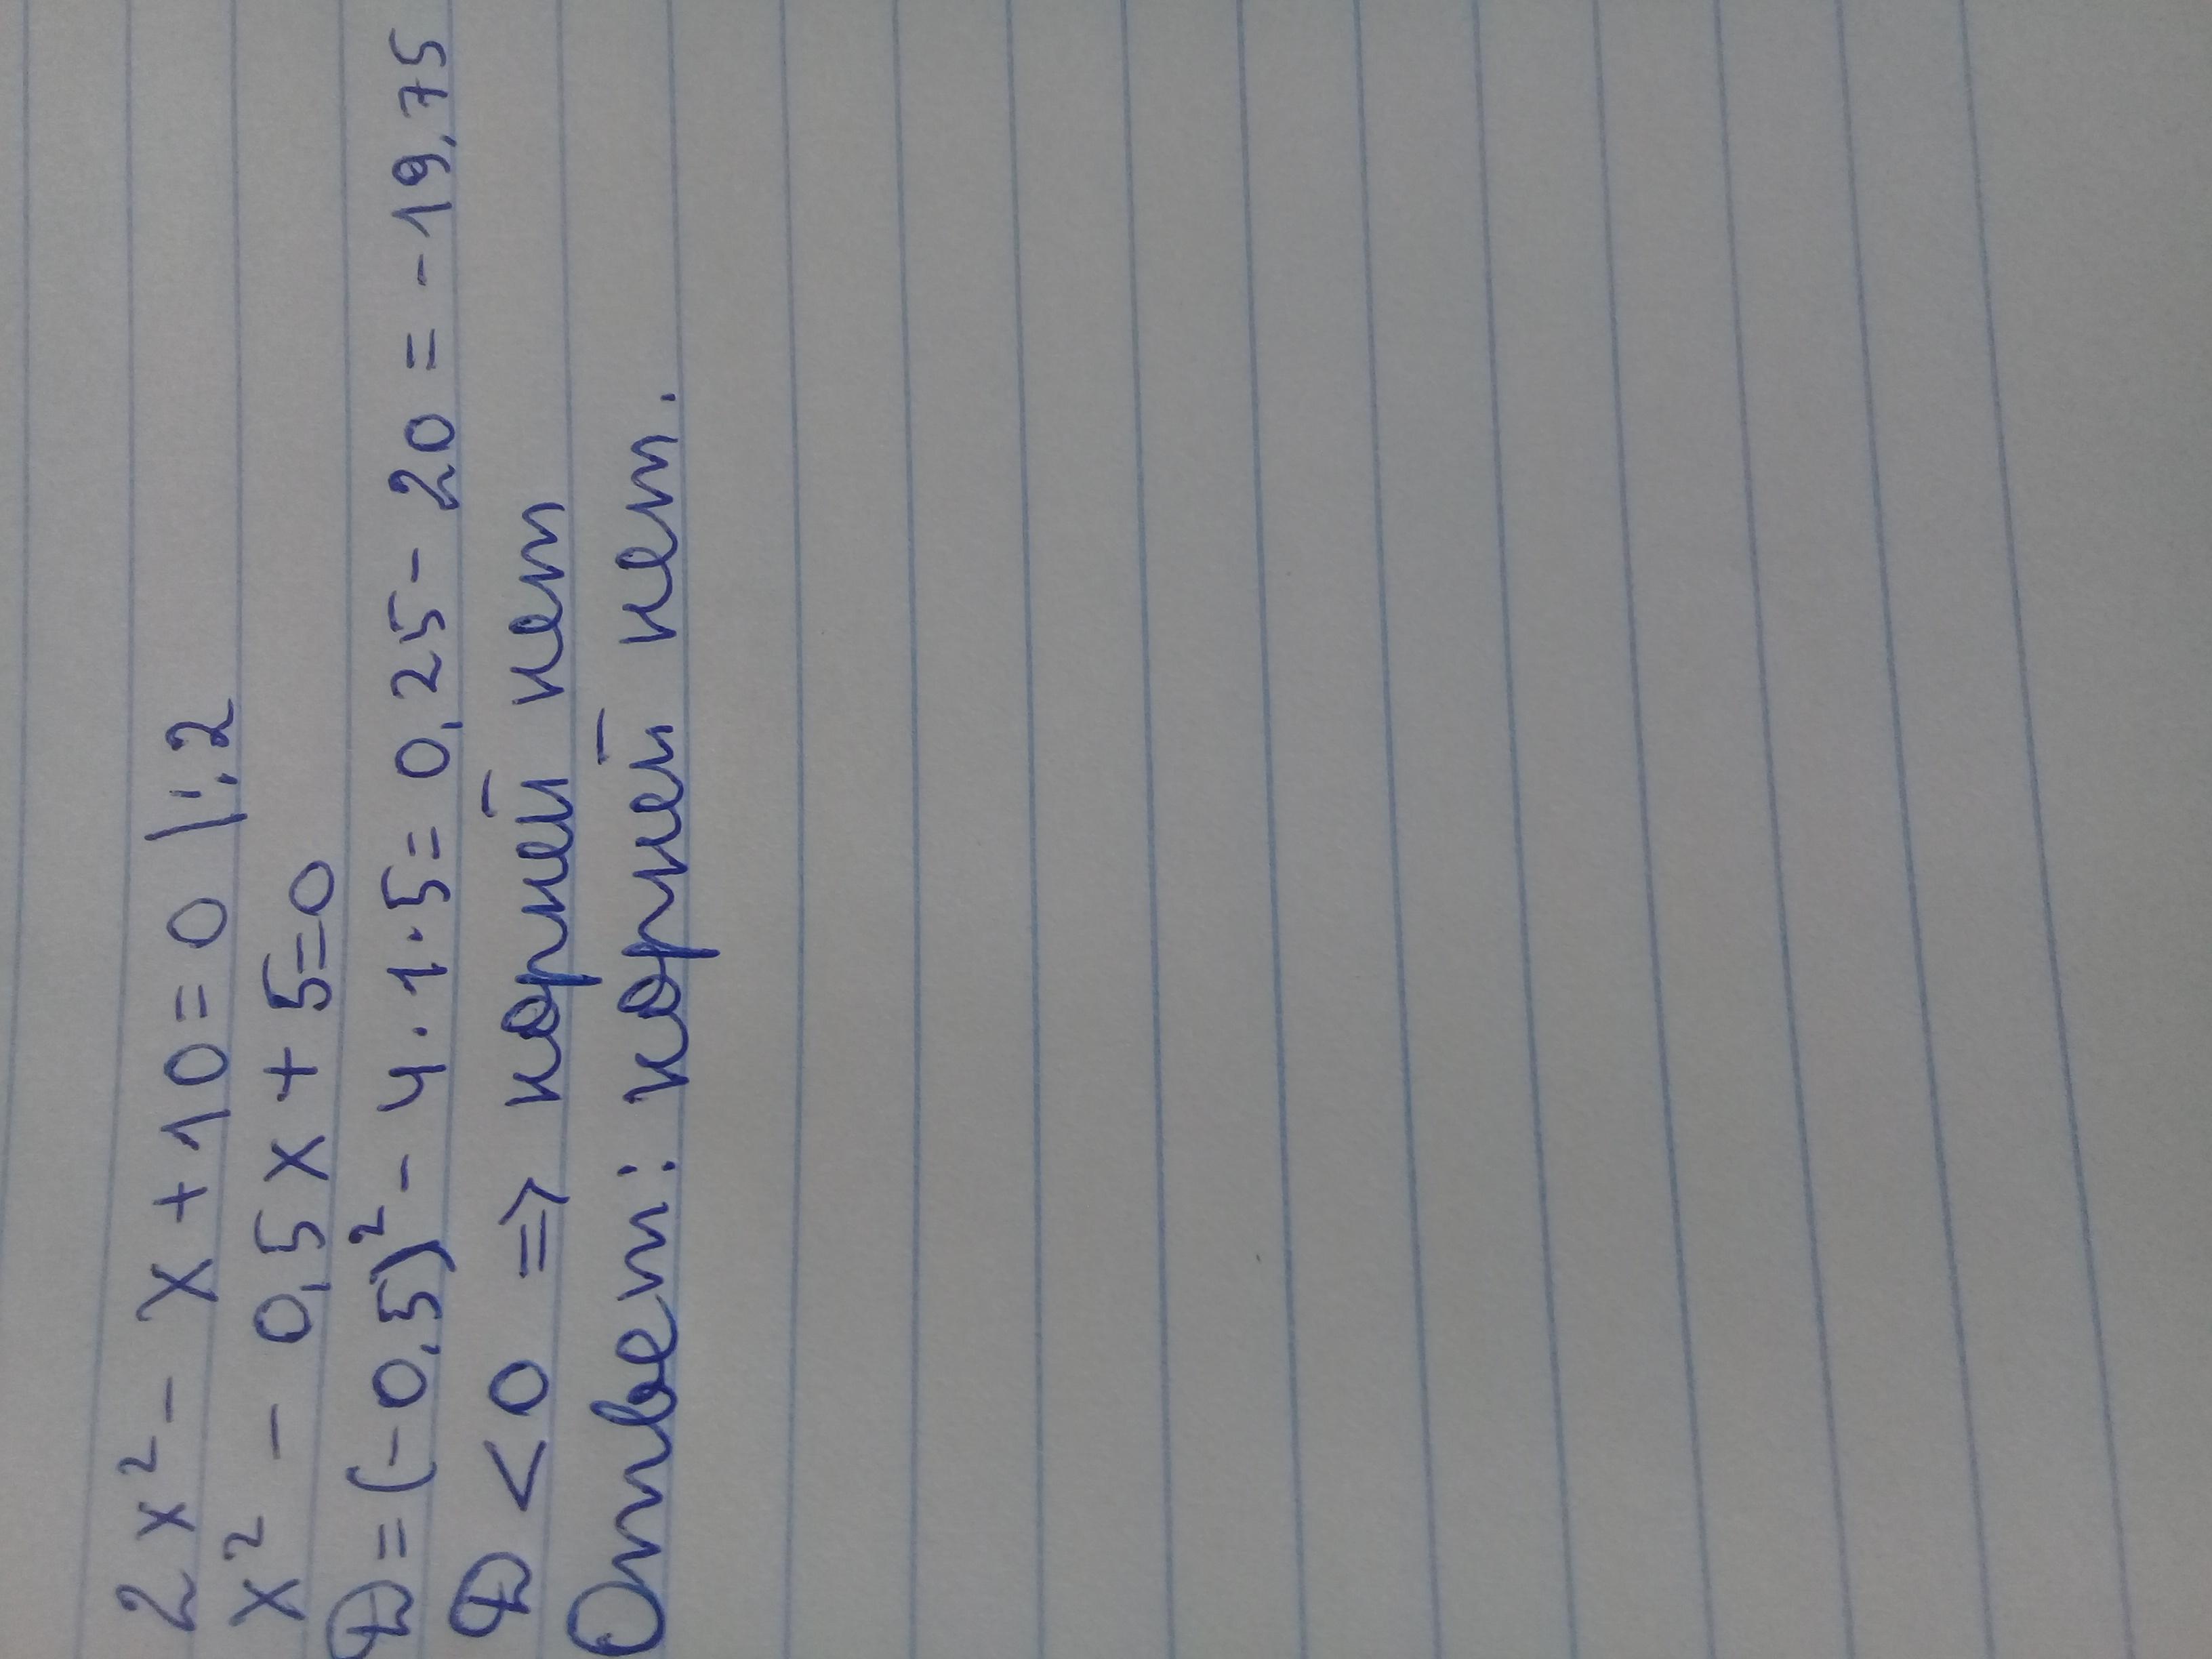 2x² - x + 10 = 0 |:2
x² - 0,5x + 5 = 0
D = (-0,5)² - 4·1·5 = 0,25 - 20 = -19,75
D < 0 => корней нет
Ответ: корней нет.